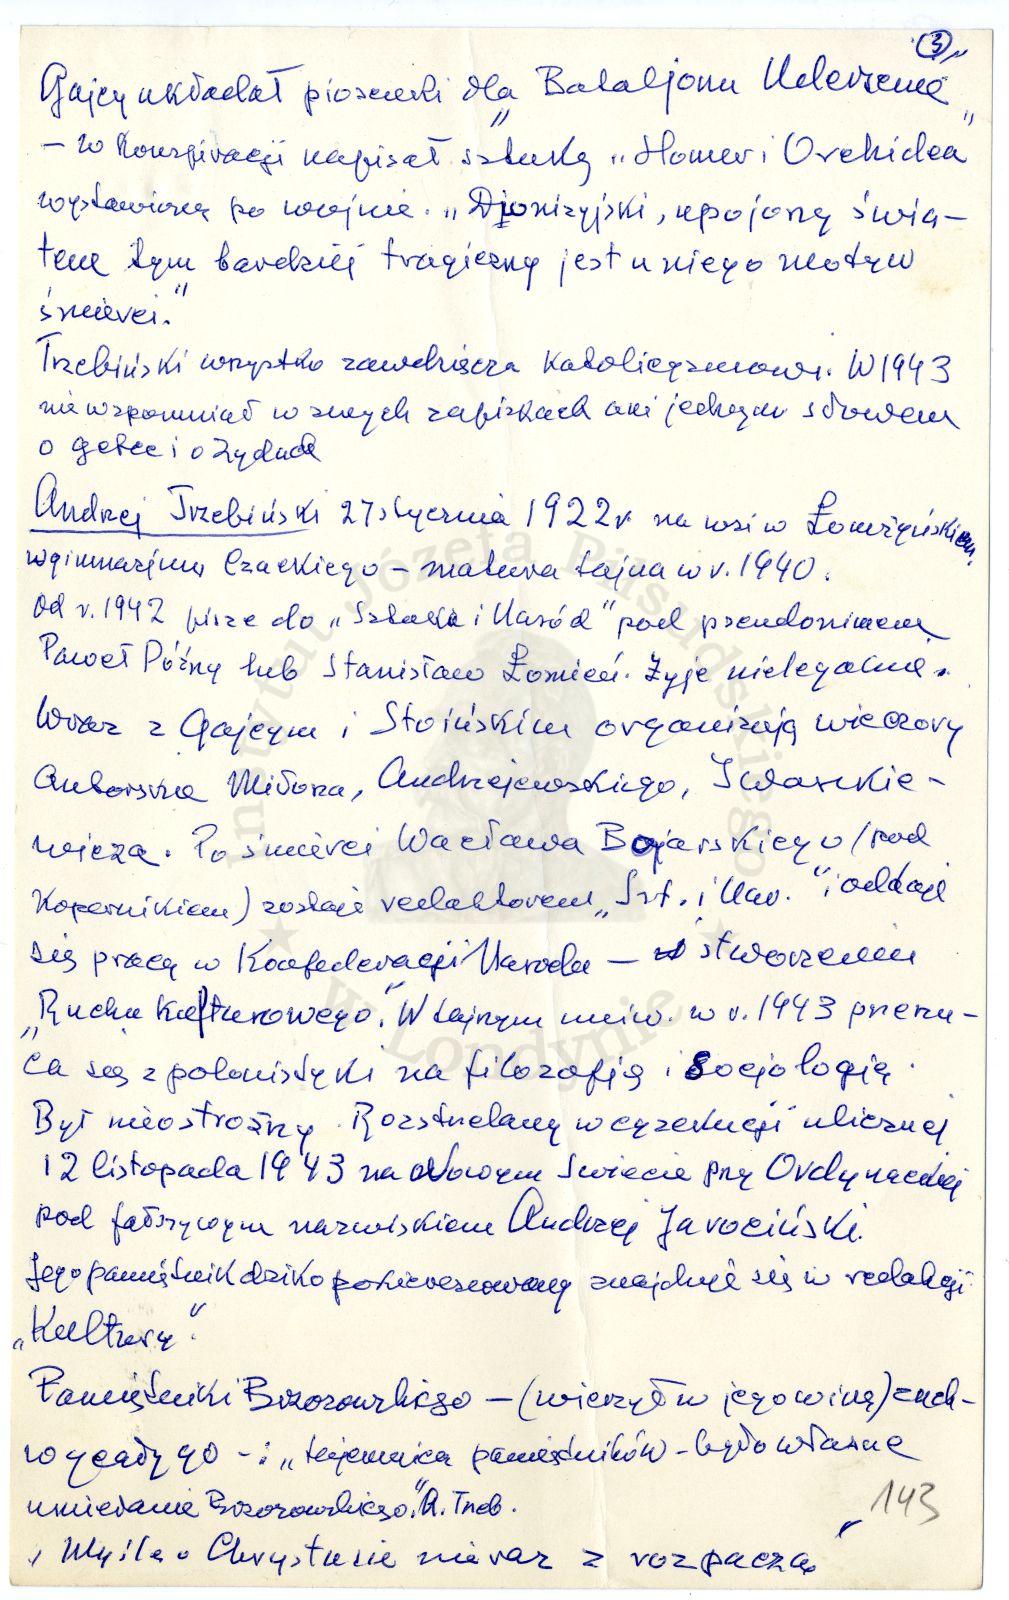 3
Gajcy układał piosenki dla "Bataljonu Uderzenie"
– w Konspiracji napisał sztukę „Homer i Orchidea"
wystawioną po wojnie. „Dionizyjski, upojony świa-
tem tym bardziej tragiczny jest u niego motyw
śmierci."
Trzebiński wszystko zawdzięcza Katolicyzmowi. W 1943
nie wspomniał w swych zapiskach ani jednym słowem
o getcie i o Żydach
Andrzej Trzebiński 27 stycznia 1922 r na wsi w Łomżyńskiem,
w gimnazjum Czackiego – matura tajna w r. 1940.
Od r. 1942 pisze do „Sztuka i Naród" pod pseudonimem
Paweł Późny lub Stanisław Łomień. Żyje nielegalnie.
Wraz z Gajcym i Stoińskim organizują wieczory
autorskie Miłosza, Andrzejewskiego, Iwaszkie-
wicza. Po śmierci Wacława Bojarskiego /pod
Kopernikiem) zostaje redaktorem „Szt. i Nar." i oddaje
się pracy w Konfederacji Narodu – stworzeniu
„Ruchu Kulturowego". W tajnym uniw. w r. 1943 przerzu-
ca się z polonistyki na filozofię i Socjologię.
Był nieostrożny. Rozstrzelany w egzekucji ulicznej
12 listopada 1943 na Nowym Świecie przy Ordynackiej
pod fałszywym nazwiskiem Andrzej Jarociński.
Jego pamiętnik dziko pokiereszowany znajduje się w redakcji
„Kultury".
Pamiętniki Brzozowskiego – (wierzył w jego winę) zach-
wycały go – : „tajemnica pamiętników – było własne
umieranie Brzozowskiego." A. Trzeb.
„Myślę o Chrystusie nieraz z rozpaczą"
143
Instytut Józefa Piłsudskiego
w Londynie